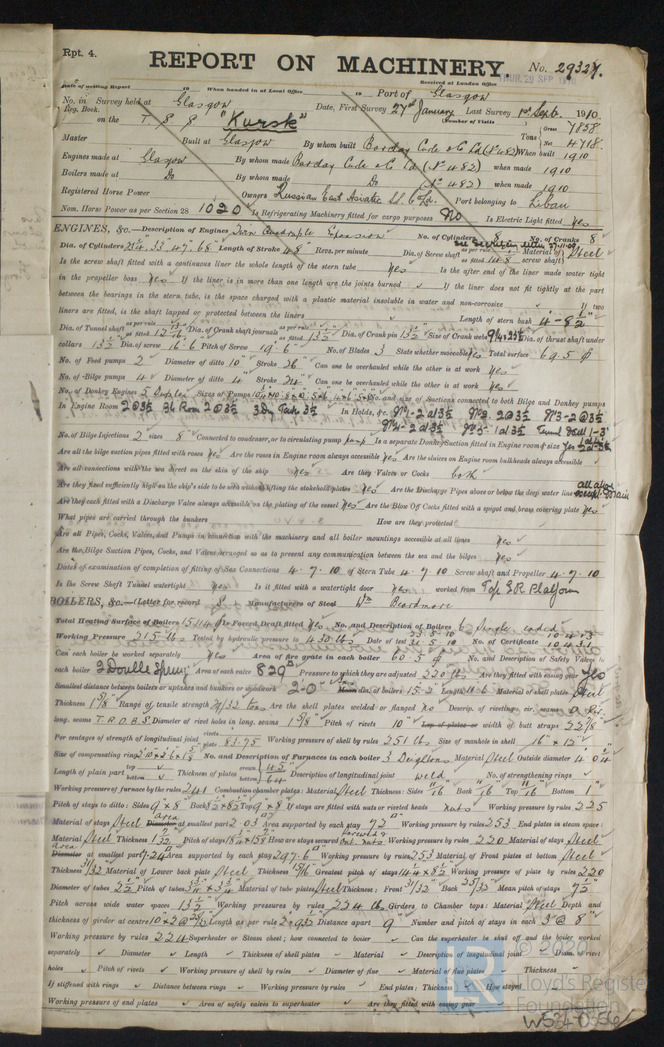 Rpt. 4.
REPORT ON MACHINERY. No. 29327.
THUR. 29 SEP 1910
Date of writing Report 19 When handed in at Local Office 19 Port of Glasgow
Received at London Office
No. in Survey held at Glasgow Date, First Survey 27th January Last Survey 1st Sept. 1910.
Reg. Book. (Number of Visits
on the T S S "Kursk" Tons Gross 7858 Net 4718
Master Built at Glasgow By whom built Barclay Curle & Co Ld (No 482) When built 1910
Engines made at Glasgow By whom made Barclay Curle & Co Ld (No 482) when made 1910
Boilers made at Do By whom made Do (No 482) when made 1910
Registered Horse Power Owners Russian East Asiatic S.S. Co Ld. Port belonging to Libau
Nom. Horse Power as per Section 28 1020 Is Refrigerating Machinery fitted for cargo purposes No Is Electric Light fitted Yes
ENGINES, &c.—Description of Engines Twin Quadruple Expansion No. of Cylinders 8 No. of Cranks 8
Dia. of Cylinders 33, 47, 68 Length of Stroke 48 Revs. per minute Dia. of Screw shaft as per rule as fitted Material of screw shaft Steel
Is the screw shaft fitted with a continuous liner the whole length of the stern tube Yes Is the after end of the liner made water tight
in the propeller boss Yes If the liner is in more than one length are the joints burned If the liner does not fit tightly at the part
between the bearings in the stern tube, is the space charged with a plastic material insoluble in water and non-corrosive If two
liners are fitted, is the shaft lapped or protected between the liners Length of stern bush 4'-8½"
Dia. of Tunnel shaft as per rule as fitted Dia. of Crank shaft journals as per rule as fitted 13½ Dia. of Crank pin 13½" Size of Crank webs Dia. of thrust shaft under
collars 13½ Dia. of screw 16'6 Pitch of Screw 19'6 No. of Blades 3 State whether moveable Yes Total surface 69.5
No. of Feed pumps 2 Diameter of ditto 10" Stroke 26" Can one be overhauled while the other is at work Yes
No. of Bilge pumps 4 Diameter of ditto 4" Stroke 24" Can one be overhauled while the other is at work Yes
No. of Donkey Engines 5 Duplex Sizes of Pumps No. and size of Suctions connected to both Bilge and Donkey pumps
In Engine Room 2 @ 3½ In Holds, &c. No 1 - 2 @ 3½ No 2. 2 @ 3½ No 3 - 2 @ 3½
No 4 - 2 @ 3½ No 5 - 1 @ 3½ Tunnel Well 1-3"
No. of Bilge Injections 2 sizes 8" Connected to condenser, or to circulating pump pump Is a separate Donkey Suction fitted in Engine room & size Yes
Are all the bilge suction pipes fitted with roses Yes Are the roses in Engine room always accessible Yes Are the sluices on Engine room bulkheads always accessible
Are all connections with the sea direct on the skin of the ship Yes Are they Valves or Cocks both
Are they fixed sufficiently high on the ship's side to be seen without lifting the stokehold plates Yes Are the Discharge Pipes above or below the deep water line all above except Main
Are they each fitted with a Discharge Valve always accessible on the plating of the vessel Yes Are the Blow Off Cocks fitted with a spigot and brass covering plate Yes
What pipes are carried through the bunkers How are they protected
Are all Pipes, Cocks, Valves, and Pumps in connection with the machinery and all boiler mountings accessible at all times Yes
Are the Bilge Suction Pipes, Cocks, and Valves arranged so as to prevent any communication between the sea and the bilges Yes
Dates of examination of completion of fitting of Sea Connections 4.7.10 of Stern Tube 4.7.10 Screw shaft and Propeller 4.7.10
Is the Screw Shaft Tunnel watertight Yes Is it fitted with a watertight door Yes worked from Top E.R Platform
BOILERS, &c.—(Letter for record S) Manufacturers of Steel Wm Beardmore
Total Heating Surface of Boilers 15114 Is Forced Draft fitted Yes No. and Description of Boilers 6 Single ended
Working Pressure 215 lbs Tested by hydraulic pressure to 430 lbs Date of test No. of Certificate
Can each boiler be worked separately Yes Area of fire grate in each boiler 60.5 No. and Description of Safety Valves to
each boiler 2 Double Spring Area of each valve 8.29 Pressure to which they are adjusted 220 lbs Are they fitted with easing gear Yes
Smallest distance between boilers or uptakes and bunkers or woodwork 2'-0" Mean dia. of boilers 15-2 Length 11-6 Material of shell plates Steel
Thickness Range of tensile strength Are the shell plates welded or flanged No Descrip. of riveting: cir. seams D. Riv.
long. seams T.R.D.B.S. Diameter of rivet holes in long. seams Pitch of rivets 10" Lap of plates or width of butt straps
Per centages of strength of longitudinal joint rivets plates 83.75 Working pressure of shell by rules 251 lbs Size of manhole in shell 16" x 12"
Size of compensating ring No. and Description of Furnaces in each boiler 3 Deightons Material Steel Outside diameter
Length of plain part top bottom Thickness of plates crown bottom Description of longitudinal joint weld No. of strengthening rings
Working pressure of furnace by the rules 241 Combustion chamber plates: Material Steel Thickness: Sides Back Top Bottom 1"
Pitch of stays to ditto: Sides 9 x 8 Back Top 9 x 8 If stays are fitted with nuts or riveted heads nuts Working pressure by rules 225
Material of stays Steel Area at smallest part 2.03 Area supported by each stay 72 Working pressure by rules 253 End plates in steam space:
Material Steel Thickness Pitch of stays How are stays secured Working pressure by rules 220 Material of stays Steel
Area at smallest part Area supported by each stay 297.6 Working pressure by rules 253 Material of Front plates at bottom Steel
Thickness Material of Lower back plate Steel Thickness Greatest pitch of stays Working pressure of plate by rules 220
Diameter of tubes 2½ Pitch of tubes Material of tube plates Steel Thickness: Front Back Mean pitch of stays
Pitch across wide water spaces 13½ Working pressures by rules 224 lb Girders to Chamber tops: Material Steel Depth and
thickness of girder at centre Length as per rule Distance apart 9" Number and pitch of stays in each 3 @ 8"
Working pressure by rules 224 Superheater or Steam chest; how connected to boiler Can the superheater be shut off and the boiler worked
separately Diameter Length Thickness of shell plates Material Description of longitudinal joint Diam. of rivet
holes Pitch of rivets Working pressure of shell by rules Diameter of flue Material of flue plates Thickness
If stiffened with rings Distance between rings Working pressure by rules End plates: Thickness How stayed
Working pressure of end plates Area of safety valves to superheater Are they fitted with easing gear
LR
Lloyd's Register
Foundation